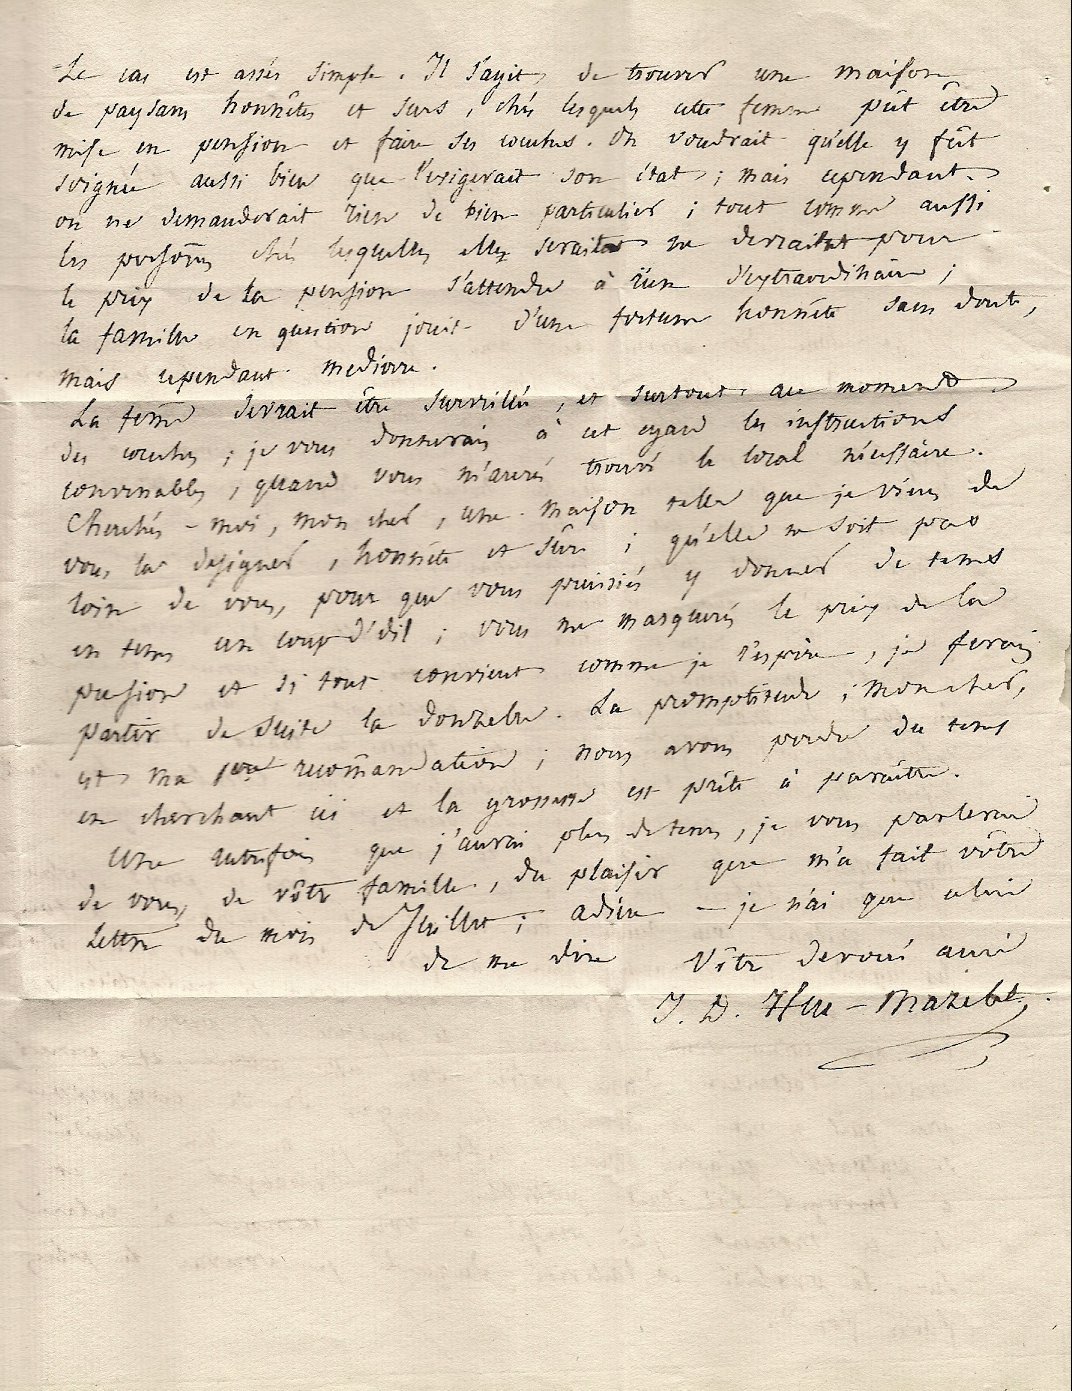 Le cas est assés simple. Il s'agit de trouver une maison
de paysans honnêtes et surs, chés lesquels cette femme pût être
mise en pension et faire ses couches. On voudrait qu'elle y fût
soignée aussi bien que l'exigerait son état; mais cependant
on ne demanderait rien de bien particulier; tout comme aussi
les persoñes chés lesquelles elle serait ne devrait pour
le prix de la pension s'attendre à rien d'extraordinaire;
la famille en question jouit d'une fortune honnête sans doute,
mais cependant mediocre.
La feme devrait être surveillée, et surtout au moment
des couches; je vous donnerais à cet egard les instructions
convenables, quand vous m'aurés trouvé le local nécessaire.
Cherchés-moi, mon cher, une maison telle que je viens de
vous la designer, honnête et sûre; qu'elle ne soit pas
loin de vous, pour que vous puissiés y donner de tems
en tems un coup d'œil; vous me marquerés le prix de la
pension et si tout convient comme je l'espère, je ferai
partir de suite la donzelle. La promptitude, mon cher,
est ma recom̃andation; nous avons perdu du tems
en cherchant ici et la grossesse est prête à paraître.
Une autrefois que j'aurai plus de tems, je vous parlerai
de vous, de vôtre famille, du plaisir que m'a fait vôtre
lettre du mois de Juillet; adieu - je n'ai que celui
de me dire Vôtre devoué ami
J. D.